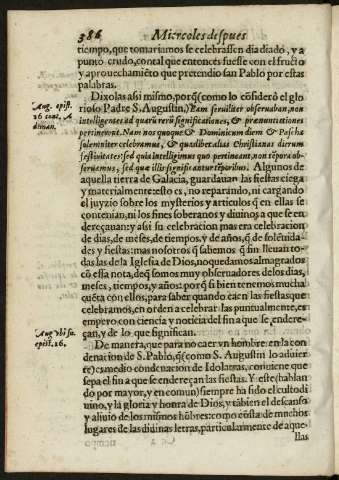 386 Miercoles despues
tiempo, que tomariamos se celebrassen dia diado, y a
punto crudo, con tal que entonces fuesse con el fructo
y aprouechamiẽto que pretendio san Pablo por estas
palabras.
Dixolas assi mismo, porq̃ (como lo cõsiderò el glo-
rioso Padre S. Augustin.) Eam seruiliter obseruabant, non
Aug. epist.
intelligentes ad quarũ rerũ significationes, & prænuntiationes
pertinerent. Nam nos quoque & Dominicum diem & Paschæ
solemniter celebramus, & quaslibet alias Christianas dierum
festiuitates: sed quia intelligimus quo pertineant, non tẽpora obser-
uamus, sed quæ illis significantur tẽporibus. Algunos de
aquella tierra de Galacia, guardauan las fiestas ciega
y materialmente: esto es, no reparãdo, ni cargando
el juyzio sobre los mysterios y articulos q̃ en ellas se
contenian, ni los fines soberanos y diuinos a que se en
dereçauan: y assi su celebracion mas era celebracion
de dias, de meses, de tiempos, y de años, q̃ de solẽnida-
des y fiestas: mas nosotros q̃ salimos q̃ fin lleuan to-
das las de la Iglesia de Dios, no quedamos almagrados
cõ esta nota, deq̃ somos muy obseruadores de los dias,
meses, tiempos, y años: por q̃ si bien tenemos mucha
quẽta con ellos, para saber quando caen las fiestas que
celebramos, en orden a celebrarlas puntualmente, es
empero con ciencia y noticia del fin a que se endere-
çan, y de lo que significan.
Aug vbi su.
epist. 26.
De manera, que para no caer vn hombre en la con
denacion de S. Pablo, q̃ (como S. Augustin lo aduier
te) es medio condenacion de Idolatras, conuiene que
sepa el fin a que se endereçan las fiestas. Y este (hablan
do por mayor, y en comun) siempre ha sido el culto di
uino, y la gloria y honra de Dios, y tãbien el descanso
y aliuio de los mismos hõbres: como cõsta de muchos
lugares de las diuinas letras, particularmente de aque-
llas